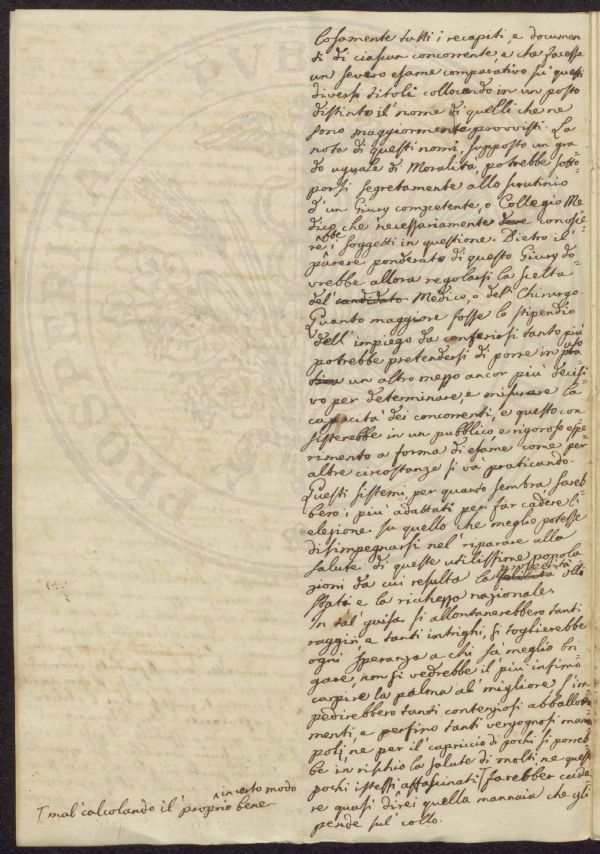 cosamente tutti i recapiti e documen
ti di ciascun concorrente, e che facesse
un severo esame comparativo su questi
diversi titoli collocando in un posto
distinto il nome di quelli che ne
sono maggiormente provvisti. La
nota di questi nomi, supposto un gra
do uguale di Moralità, potrebbe sotto
porsi segretamente allo scrutinio
d'un Giury competente, o Collegio Me
dico, che necessariamente deve conosce
rebbe i soggetti in questione. Dietro il
parere ponderato di questo Giury do
vrebbe allora regolarsi la scelta
del candidato Medico, o del Chirurgo.
Quanto maggiore fosse lo stipendio
dell'impiego da conferirsi tanto più
potrebbe pretendersi di porre in uso
un altro mezzo ancor più decisi
vo per determinare, e misurare la
capacità dei concorrenti, e questo con
sisterebbe in un pubblico, e rigoroso espe
rimento a forma di esame come per
altre circostanze si và praticando.
Questi sistemi, per quanto sembra sareb
bero i più adattati per far cadere l'
elezione su quello che meglio potesse
disimpegnarsi nel riparare alla
salute di queste utilissime popola
zioni da cui resulta la prosperità dello
Stato e la ricchezza nazionale.
In tal guisa si allontanerebbero tanti
raggiri e tanti intrighi, si toglierebbe
ogni speranza a chi sa meglio bri
gare, non si vedrebbe il più infimo
carpire la palma al migliore, s'im
pedirebbero tanti contenziosi abballotta
menti, e perfino tanti vergognosi mono
poli, ne per il capriccio di pochi si porreb
be in rischio la salute di molti, ne questi
pochi istessi affascinati farebber cade
re quasi direi quella mannaia che gli
pende sul collo.
in certo modo
mal calcolando il proprio bene